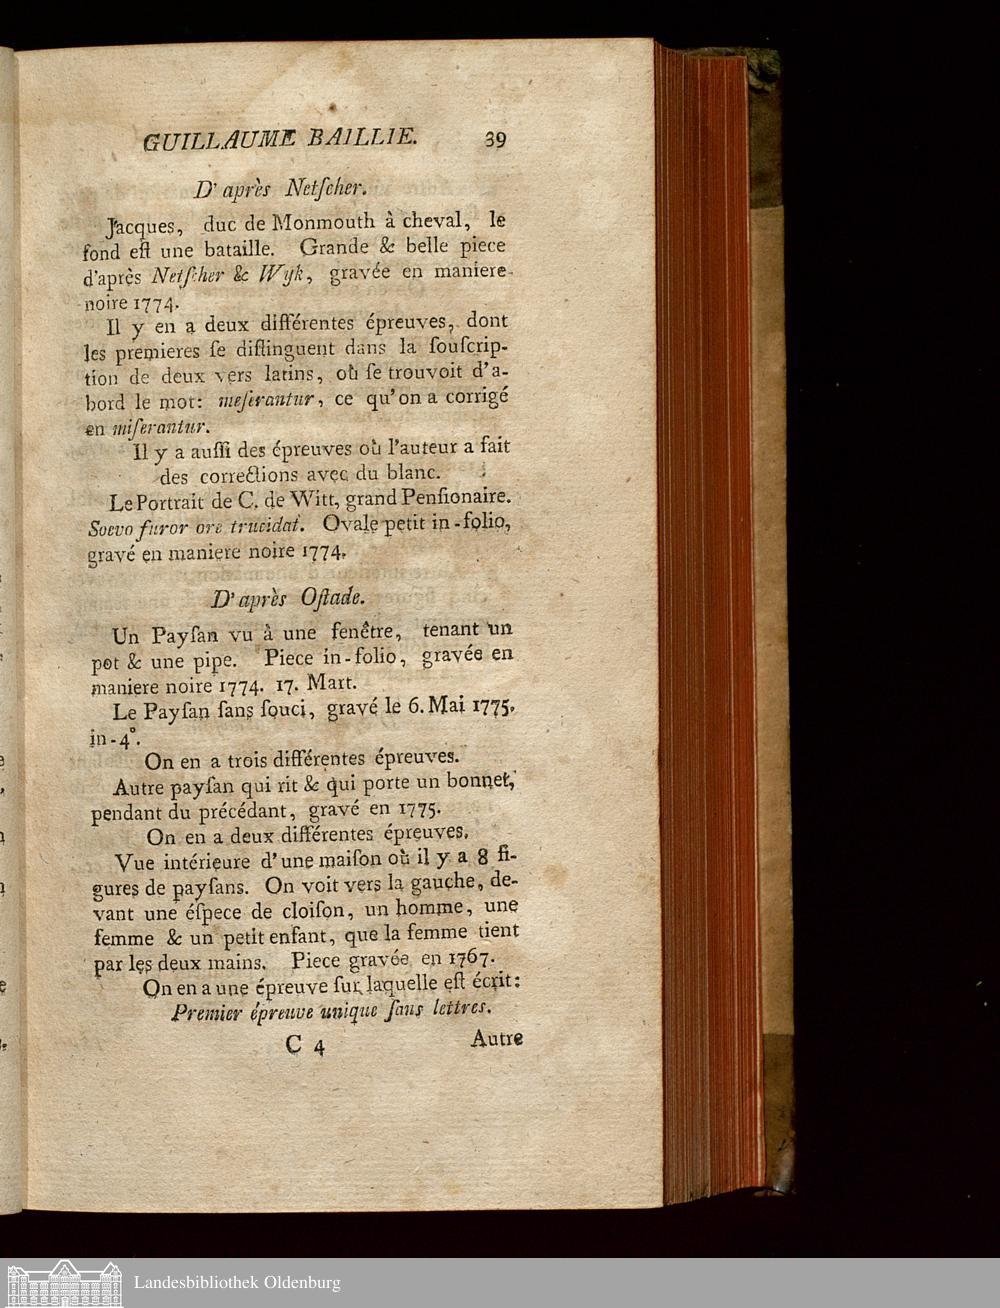 GUILLAUME BAILLIE. 39
D'après Netſcher.
Jacques, duc de Monmouth à cheval, le
fond eſt une bataille. Grande & belle piece
d'après Netſcher & Wyk, gravée en maniere
noire 1774.
Il y en a deux différentes épreuves, dont
les premieres ſe diſtinguent dans la ſouſcrip-
tion de deux vers latins, où ſe trouvoit d'a-
bord le mot: meſerantur, ce qu'on a corrigé
en miſerantur.
Il y a auſſi des épreuves où l'auteur a fait
des corrections avec du blanc.
Le Portrait de C. de Witt, grand Penſionaire.
Soevo furor ore trucidat. Ovale petit in-folio,
gravé en maniere noire 1774.
D'après Oſtade.
Un Payſan vu à une fenêtre, tenant un
pot & une pipe. Piece in-folio, gravée en
maniere noire 1774. 17. Mart.
Le Payſan ſans ſouci, gravé le 6. Mai 1775.
in-4°.
On en a trois différentes épreuves.
Autre payſan qui rit & qui porte un bonnet,
pendant du précédant, gravé en 1775.
On en a deux différentes épreuves.
Vue intérieure d'une maiſon où il y a 8 fi-
gures de payſans. On voit vers la gauche, de-
vant une éſpece de cloiſon, un homme, une
femme & un petit enfant, que la femme tient
par les deux mains. Piece gravée en 1767.
On en a une épreuve ſur laquelle eſt écrit:
Premier épreuve unique ſans lettres.
C 4 Autre
Landesbibliothek Oldenburg